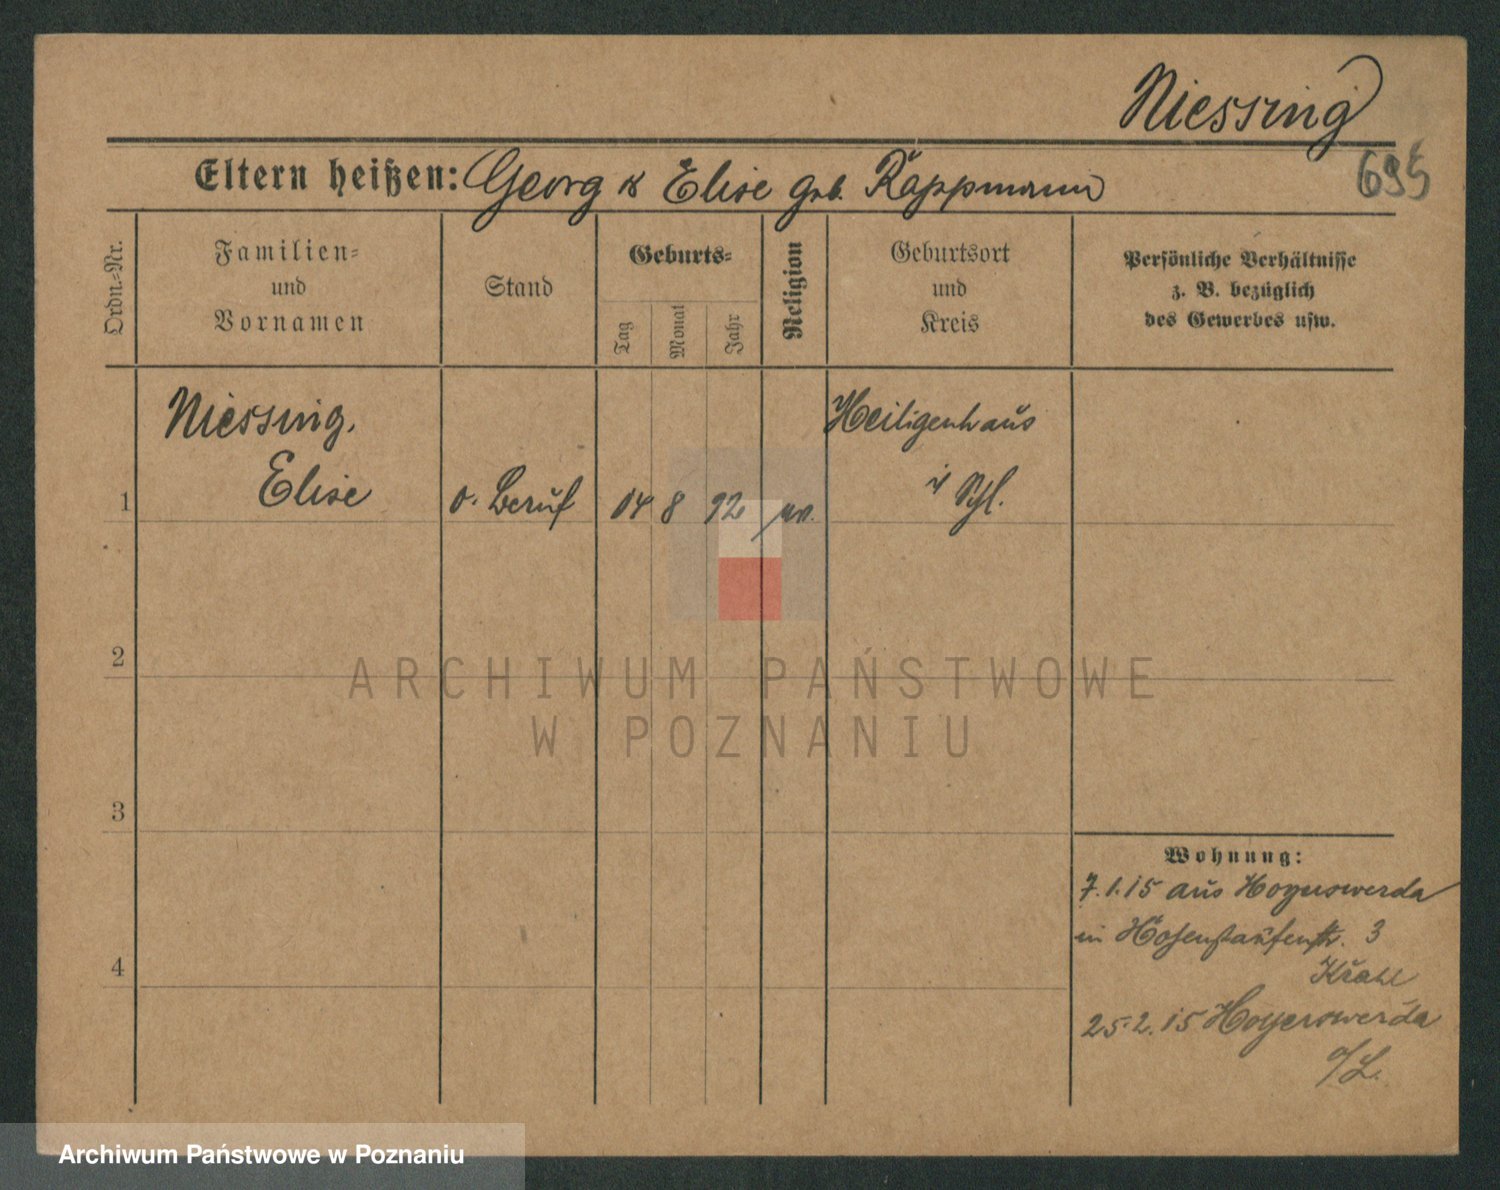 Niessing
695
Eltern heißen: Georg & Elise geb. Käppmann
Ordn.=Nr.
Familien=
und
Vornamen
Stand
Geburts=
Tag
Monat
Jahr
Religion
Geburtsort
und
Kreis
Persönliche Verhältnisse
z. B. bezüglich
des Gewerbes usw.
Niessing,
Elise
1
o. Beruf
14 8 92
Heiligenhaus
2
ARCHIWUM PAŃSTWOWE
W POZNANIU
3
Wohnung:
7.1.15 aus Hoyerswerda
in Hohenstaufenstr. 3
4
25.2.15 Hoyerswerda
o/L.
Archiwum Państwowe w Poznaniu